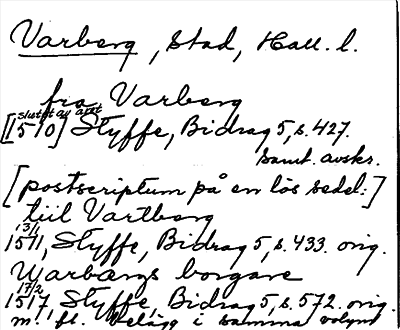 Varberg, stad, Hall. l.
fra Varberg
slutet av året
[1510] Styffe, Bidrag 5, s. 427.
samt. avskr.
[postscriptum på en lös sedel:]
tiil Vartberg
13/1
1511, Styffe, Bidrag 5, s. 433. orig.
Warbærgs borgare
17/2
1517, Styffe, Bidrag 5, s. 572. orig.
m. fl. belägg i samma volym